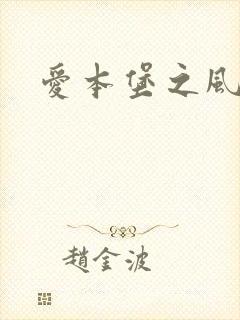 愛本堡之風
趙金波